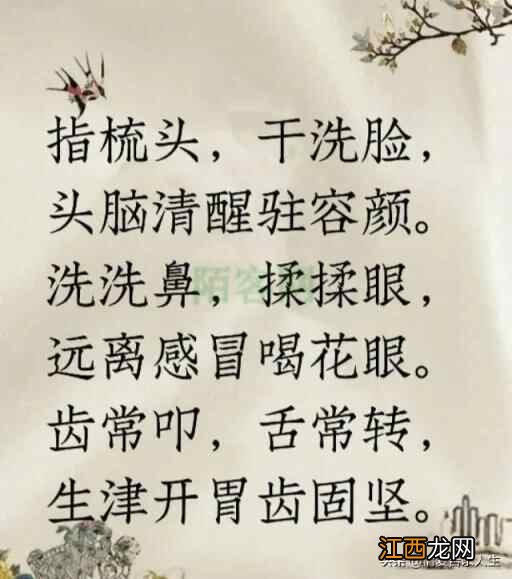 指梳头，干洗脸，
头脑清醒驻容颜。
洗洗鼻，揉揉眼，
远离感冒喝花眼。
齿常叩，舌常转，
生津开胃齿固坚。
江西龙网